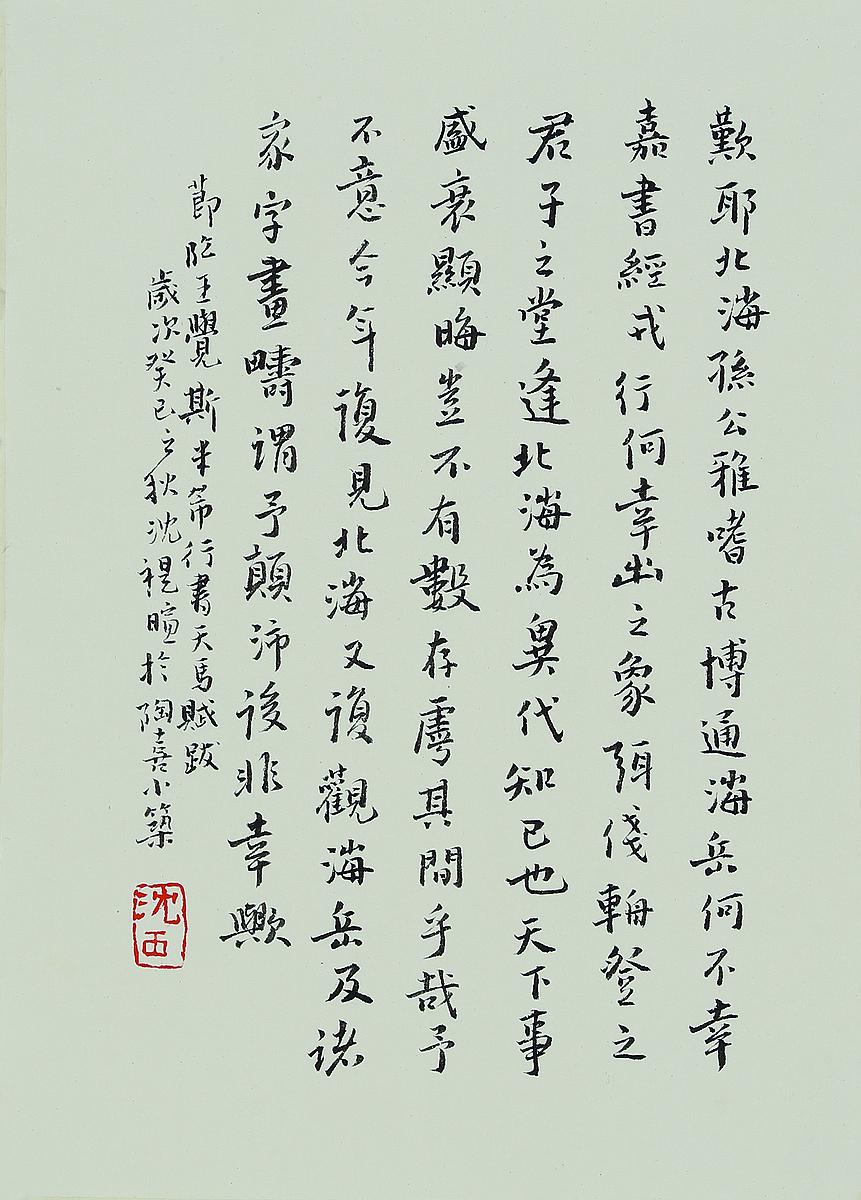 歎耶北海孫公雅嗜古博通海岳何不幸
嘉書經戎行何幸出之象弭俴輈登之
君子之堂逢北海為異代知己也天下事
盛衰顯晦豈不有數存虖其間乎哉予
不意今年復見北海又復觀海岳及諸
家字畫疇謂予顛沛後非幸歟
節臨王覺斯米芾行書天馬賦跋
歲次癸巳之秋沈禔暄於陶喜小築
沈